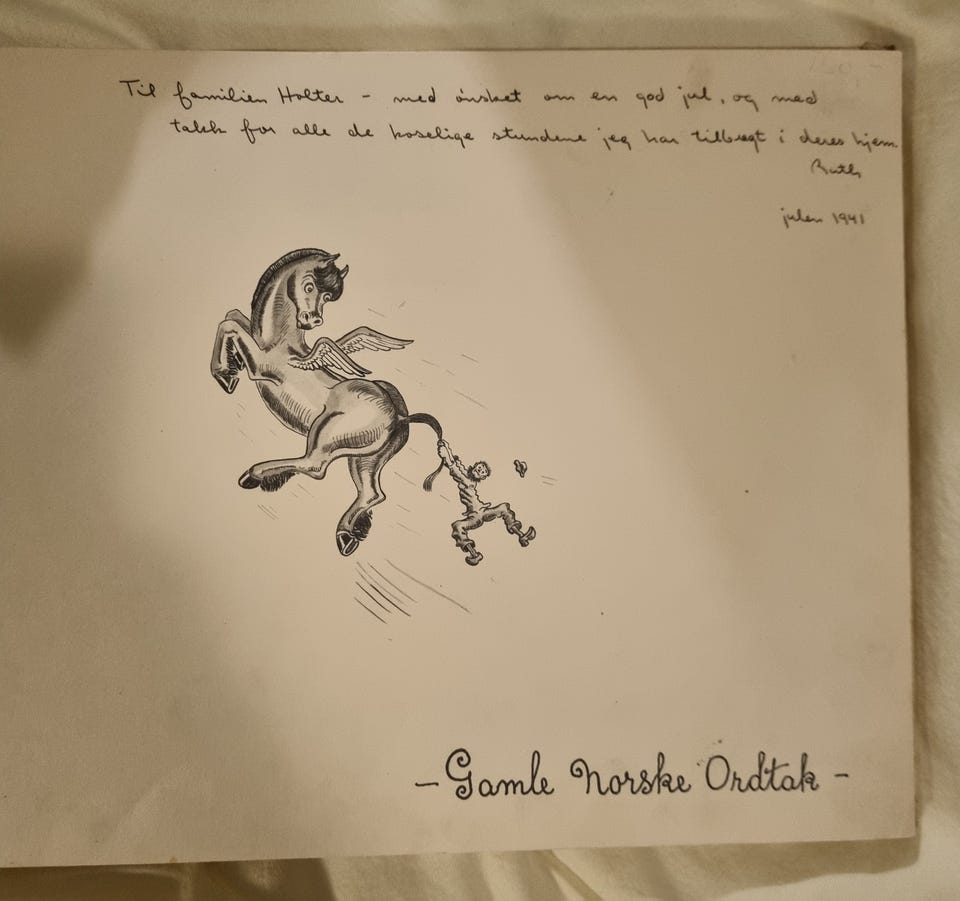 Til familien Holter - med ønsket om en god jul, og med
takk for alle de koselige stundene jeg har tilbragt i deres hjem.
Ruth
julen 1941
- Gamle Norske Ordtak -